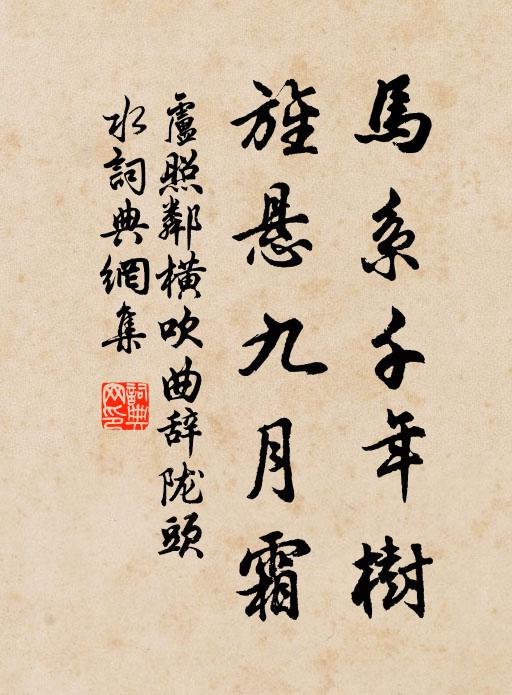 馬系千年樹
旌悬九月霜
盧照鄰橫吹曲辞陇頭
水詞典網集
詞典网印